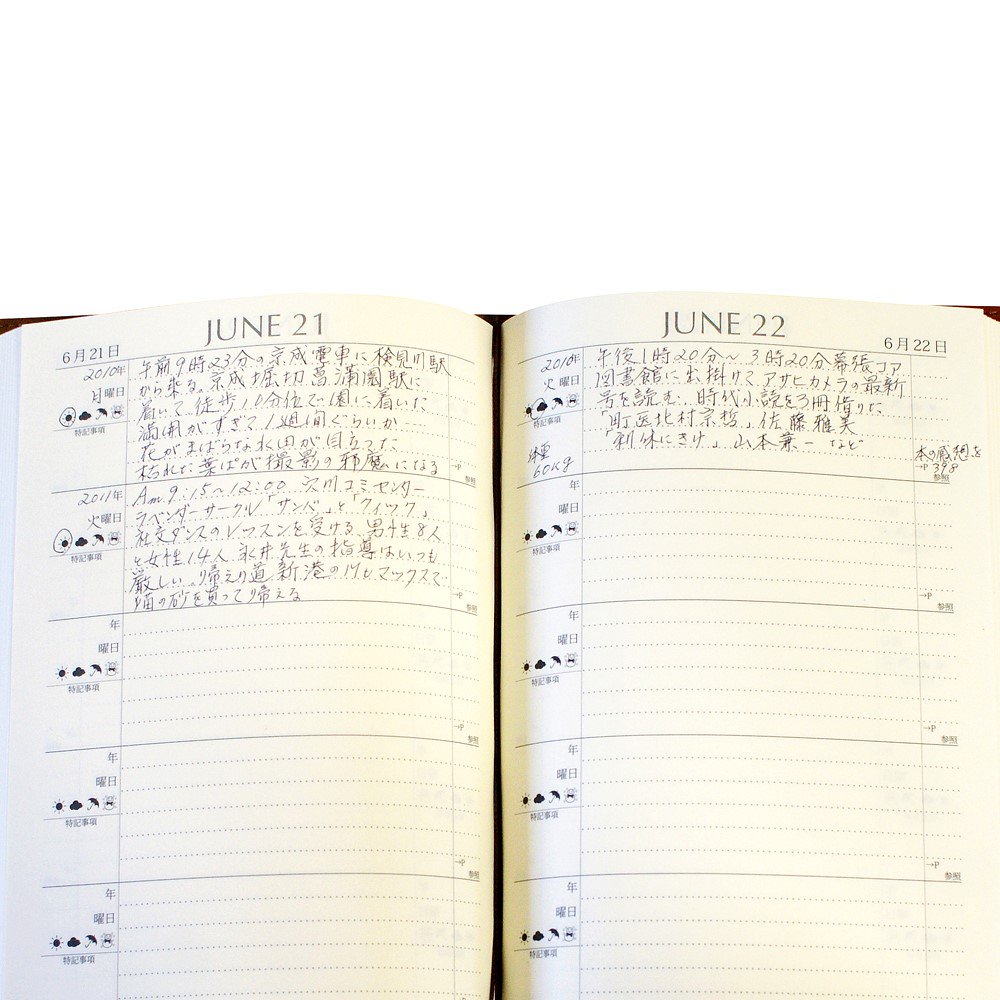 JUNE 21
6月21日
2010年
月曜日
特記事項
午前9時23分の京成電車に検見川駅
から乗る。京成堀切菖蒲園駅に
着いて徒歩10分位で園に着いた
満開がすぎて1週間ぐらいか…
花がまばらな水田が目立った
枯れた葉ぱが撮影の邪魔になる
→P
参照
2011年
火曜日
特記事項
Am 9:15~12:00 穴川コミセンター
ラベンダーサークル「サンバ」と「クイック」
社交ダンスのレッスンを受ける 男性8人
と女性14人 永井先生の指導はいつも
厳しい。帰えり道 新港の マックスで
猫の砂を買って帰える
→P
参照
年
曜日
特記事項
→P
参照
年
曜日
特記事項
→P
参照
年
曜日
特記事項
JUNE 22
6月22日
2010年
火曜日
体重
60kg
午後1時20分~3時20分幕張コア
図書館に出掛けて アサヒカメラの最新
号を読む… 時代小説を3冊借りた
「町医北村宗哲」佐藤雅美
「利休にきけ」山本兼一 など
本の感想を
→P 398
参照
年
曜日
特記事項
→P
参照
年
曜日
特記事項
→P
参照
年
曜日
特記事項
→P
参照
年
曜日
特記事項